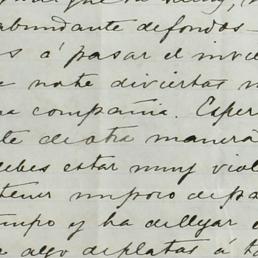 abundante de fondos
á pasar el invie
note diviertas
compañia. Esper
te de otra manera
debes estar muy viol
tener un poco de pa
mpo y ha de llegar
algo de platas á